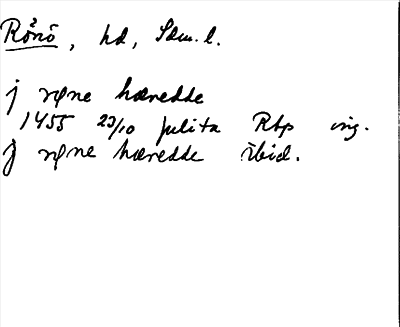 Rönö, hd, Södm. l.
j røne hæredde
1455 23/10 Julita Rbp orig.
j røne hæredde ibid.